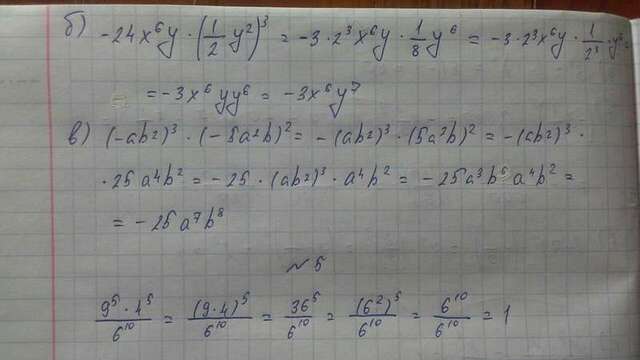 б) -24x⁶y · (1/2 y²)³ = -3 · 2³x⁶y · 1/8 y⁶ = -3 · 2³x⁶y · 1/2³ · y⁶ =
= -3x⁶yy⁶ = -3x⁶y⁷
в) (-ab²)³ · (-5a²b)² = -(ab²)³ · (5a²b)² = -(ab²)³ ·
· 25a⁴b² = -25 · (ab²)³ · a⁴b² = -25a³b⁶a⁴b² =
= -25a⁷b⁸
№ 5
9⁵ · 4⁵/6¹⁰ = (9 · 4)⁵/6¹⁰ = 36⁵/6¹⁰ = (6²)⁵/6¹⁰ = 6¹⁰/6¹⁰ = 1